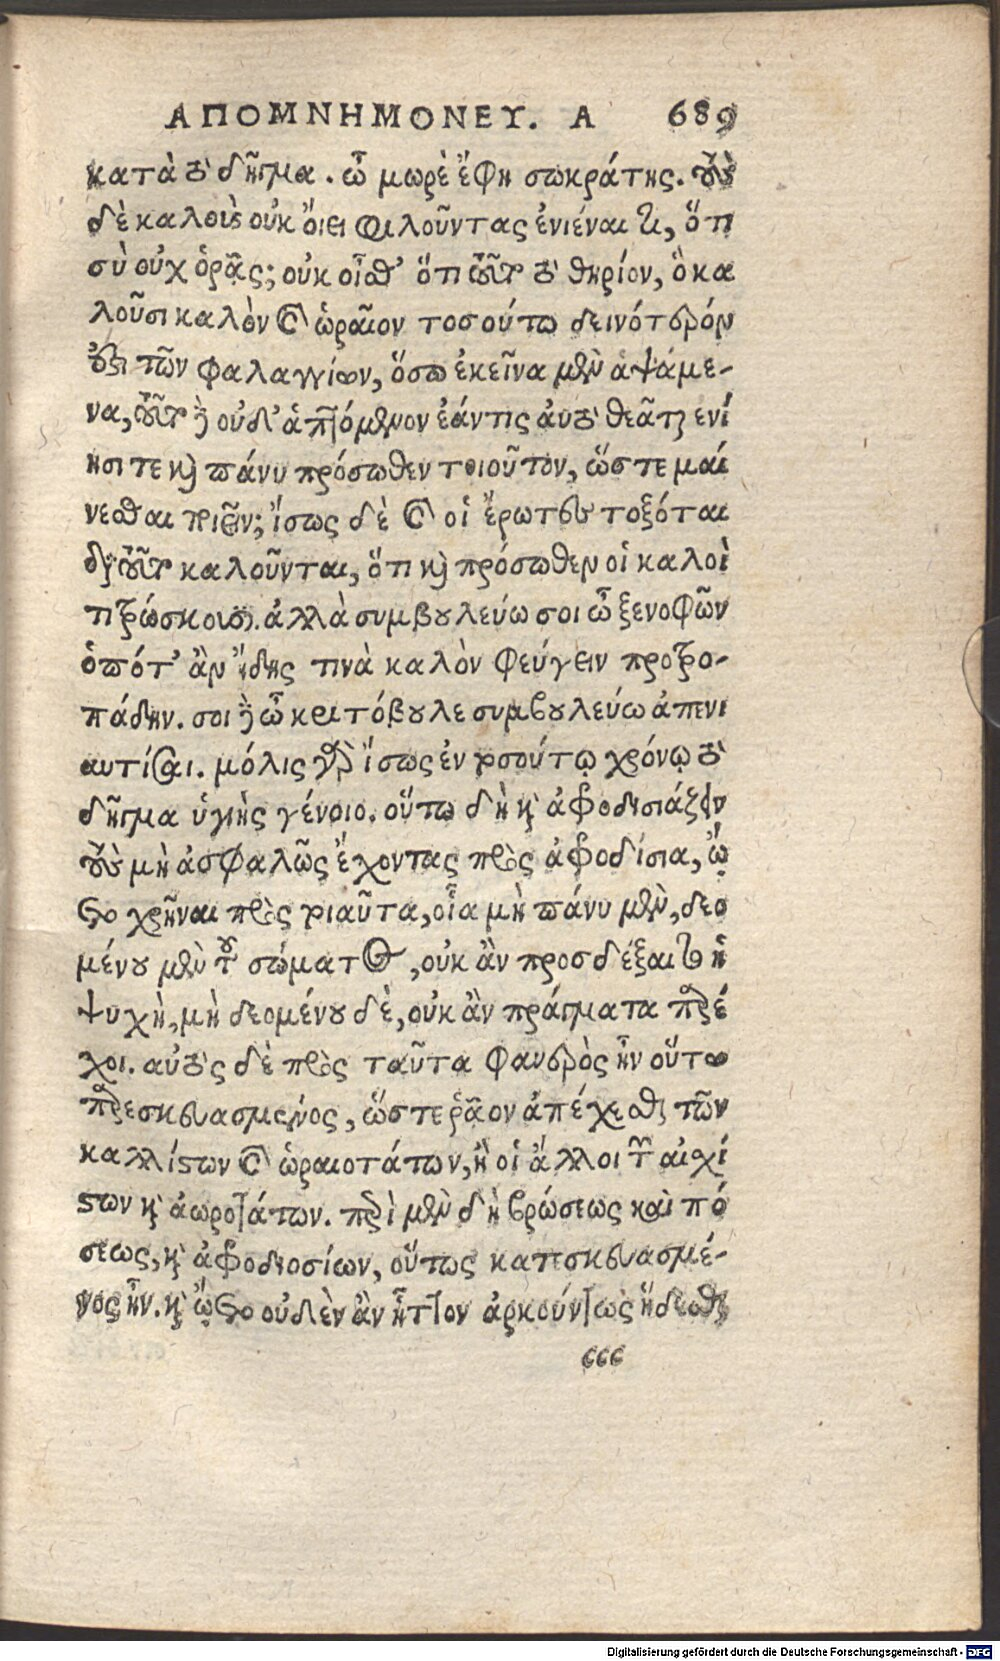 ΑΠΟΜΝΗΜΟΝΕΥ. Α 689
κατὰ τὸ δῆγμα. ὦ μωρὲ ἔφη σωκράτης. τοὺς
δὲ καλοὺς οὐκ ὄιει φιλοῦντας ἐνιέναι τι, ὅτι
σὺ οὐχ ὁρᾷς; οὐκ οἶσθ' ὅτι τοῦτο τὸ θηρίον, ὃ κα
λοῦσι καλὸν καὶ ὡραῖον τοσούτω δεινότερόν
ἐστι τῶν φαλαγγίων, ὅσω ἐκεῖνα μὲν ἁψάμε-
να, τοῦτο δὲ οὐδ' ἁπτόμενον ἐάντις αὐτὸ θεᾶται ενί
ησι τε καὶ πάνυ πρόσωθεν τοιοῦτον, ὥστε μαί
νεσθαι ποιεῖν; ἴσως δὲ καὶ οἱ ἔρωτες τοξόται
διὰ τοῦτο καλοῦνται, ὅτι καὶ πρόσωθεν οἱ καλοὶ
τιτρώσκουσιν. ἀλλὰ συμβουλεύω σοι ὦ ξενοφῶν
ὁπότ' ἂν ἴδης τινὰ καλὸν φεύγειν προτρο-
πάδην. σοι δὲ ὦ κριτόβουλε συμβουλεύω ἀπενι
αυτίσαι. μόλις γὰρ ἴσως ἐν τοσούτῳ χρόνῳ τὸ
δῆγμα ὑγιὴς γένοιο. οὕτω δὴ καὶ ἀφροδισιάζειν
τοὺς μὴ ἀσφαλῶς ἔχοντας πρὸς ἀφροδίσια, ᾤ
ετο χρῆναι πρὸς τοιαῦτα, οἷα μὴ πάνυ μὲν, δεο
μένου μὲν τοῦ σώματος, οὐκ ἂν προσδέξαιτο ἡ
ψυχὴ, μὴ δεομένου δὲ, οὐκ ἂν πράγματα παρέ
χοι. αὐτὸς δὲ πρὸς ταῦτα φανερὸς ἦν οὕτω
παρεσκευασμένος, ὥστε ῥᾷον ἀπέχεσθαι τῶν
καλλίστων καὶ ὡραιοτάτων, ἢ οἱ ἄλλοι τῶν αἰσχί
στων καὶ ἀωροτάτων. περὶ μὲν δὴ βρώσεως καὶ πό
σεως, καὶ ἀφροδισίων, οὕτως κατεσκευασμέ-
νος ἦν. καὶ ᾤετο οὐδὲν ἂν ἧττον ἀρκούντως ἥδεσθαι
ccc
Digitalisierung gefördert durch die Deutsche Forschungsgemeinschaft - DFG